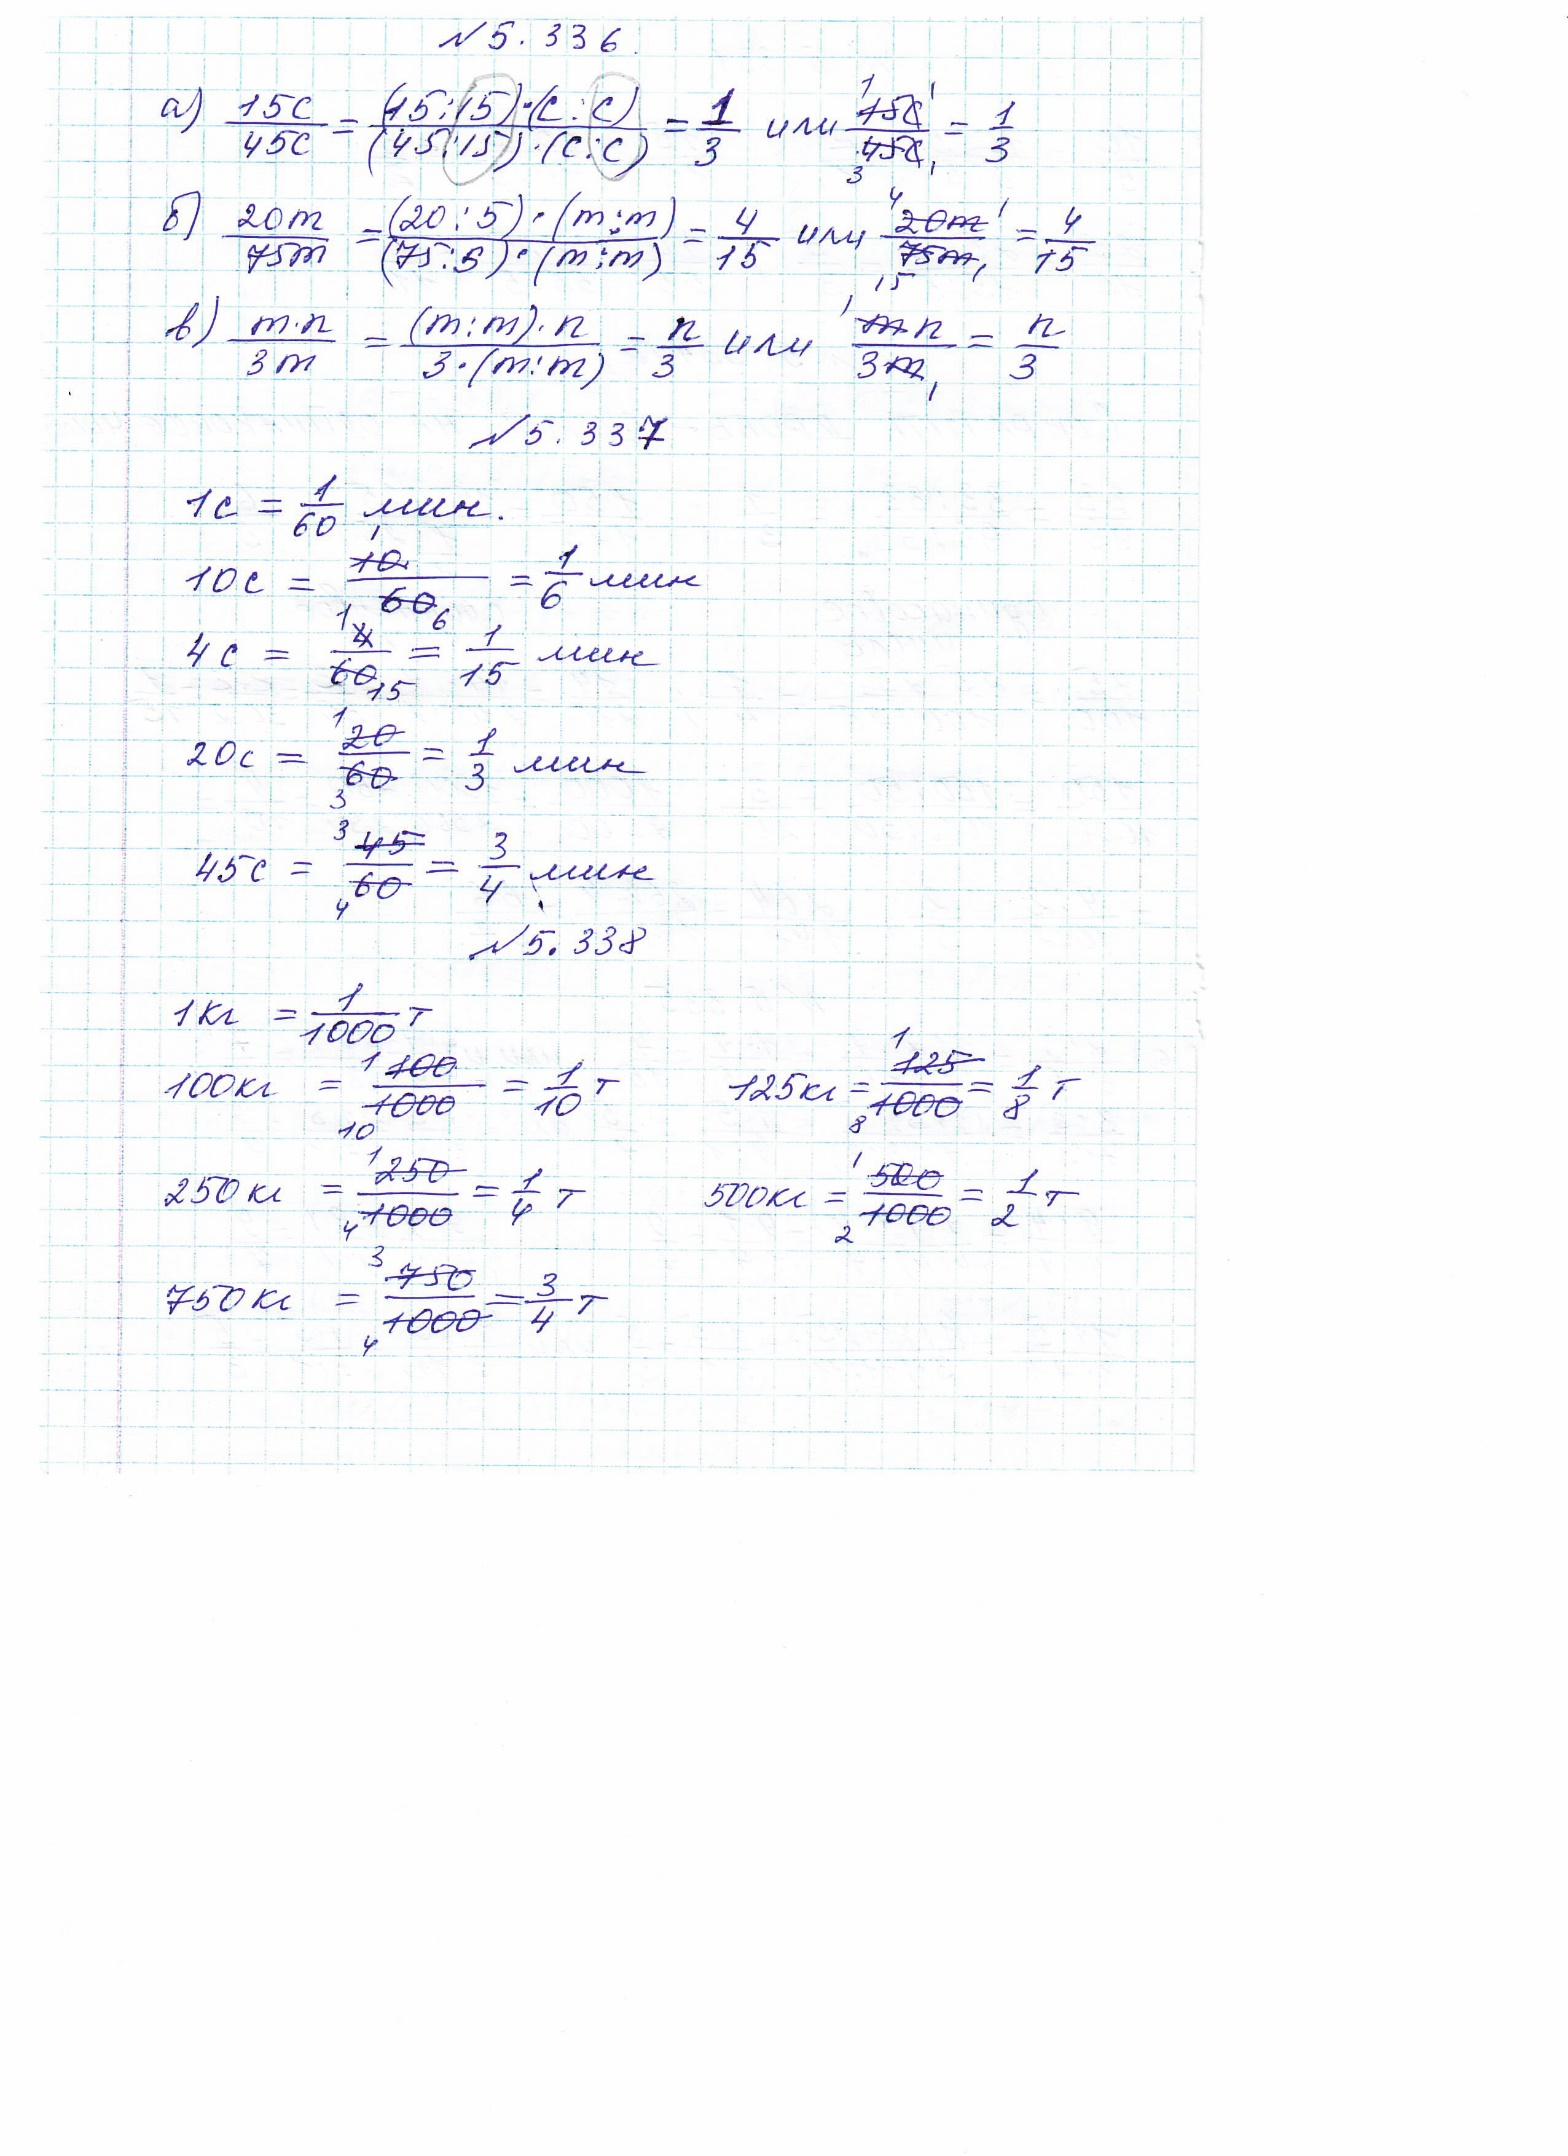 №5.336.
а) 15c/45c = (15:15)·(c:c)/(45:15)·(c:c) = 1/3 или 15c/45c = 1/3
б) 20m/75m = (20:5)·(m:m)/(75:5)·(m:m) = 4/15 или 20m/75m = 4/15
в) m·n/3m = (m:m)·n/3·(m:m) = n/3 или mn/3m = n/3
№5.337
1с = 1/60 мин.
10с = 10/60 = 1/6 мин
4с = 4/60 = 1/15 мин
20с = 20/60 = 1/3 мин
45с = 45/60 = 3/4 мин
№5.338
1кг = 1/1000 т
100кг = 100/1000 = 1/10 т 125кг = 125/1000 = 1/8 т
250кг = 250/1000 = 1/4 т 500кг = 500/1000 = 1/2 т
750кг = 750/1000 = 3/4 т